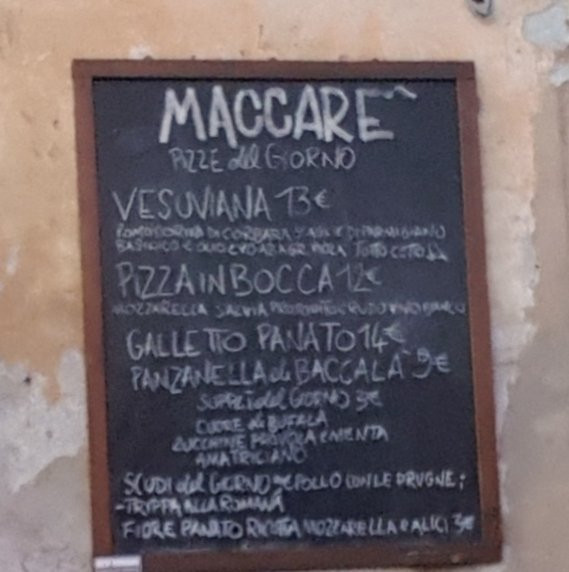 MACCARE
PIZZE del GIORNO
VESUVIANA 13€
POMODORINI DI CORBARA DI PARMIGIANO
BASILICO E OLIO EVO
PIZZA IN BOCCA 12€
MOZZARELLA SALVIA PROSCIUTTO CRUDO VINO BIANCO
GALLETTO PANATO 14€
PANZANELLA di BACCALÀ 9€
SUPPLÌ del GIORNO 3€
CUORE di BUFALA
ZUCCHINE PROVOLA E MENTA
AMATRICIANO
SCUDI del GIORNO POLLO CON LE PRUGNE;
-TRIPPA ALLA ROMANA
FIORE PANATO RICOTTA MOZZARELLA e ALICI 3€